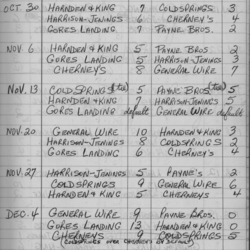 OCT. 30 HARNDEN & KING 7 COLDSPRINGS 3
HARRISON-JENINGS 6 CHERNEY'S 4
GORES LANDING 7 PAYNE BROS. 2
NOV 6 HARNDEN & KING 5 PAYNE BROS 2
GORES LANDING 5 HARRISON-JENINGS 3
CHERNEYS 8 GENERAL WIRE 7
NOV. 13 COLDSPRINGS (tie) 5 PAYNE BROS (tie) 5
HARNDEN & KING 7 HARRISON-JENINGS 5
GORES LANDING default GENERAL WIRE default
NOV. 20 GENERAL WIRE 10 HARNDEN & KING 3
HARRISON-JENINGS 8 COLDSPRINGS 2
GORES LANDING 6 CHERNEY'S 4
NOV. 27 HARRISON-JENINGS 5 PAYNE'S 2
COLDSPRINGS 9 GENERAL WIRE 6
HARNDEN & KING 5 CHERNEYS 4
DEC. 4 GENERAL WIRE 9 PAYNE BROS. 0
GORES LANDING 13 HARNDEN & KING 0
CHERNEYS 9 COLDSPRINGS 5
(COLDSPRINGS